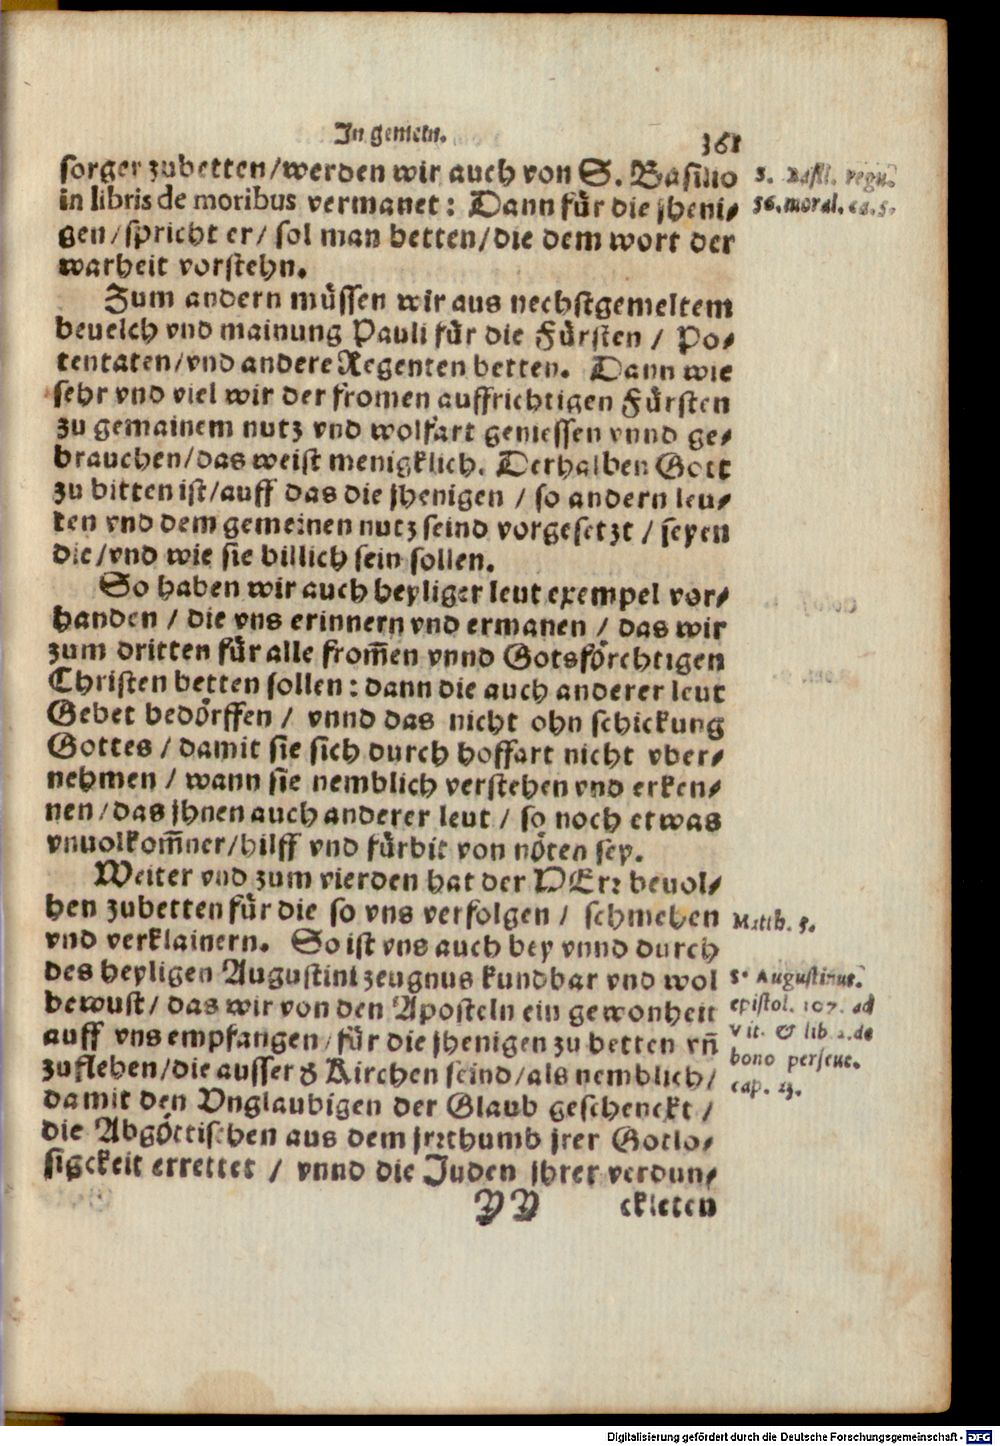 In gemein.
361
sorger zubetten/werden wir auch von S. Basilio
in libris de moribus vermanet: Dann für die jheni⸗
gen/spricht er/ sol man betten/die dem wort der
warheit vorstehn.
Zum andern müssen wir aus nechstgemeltem
beuelch vnd mainung Pauli für die Fürsten / Po⸗
tentaten/vnd andere Regenten betten. Dann wie
sehr vnd viel wir der fromen auffrichtigen Fürsten
zu gemainem nutz vnd wolfart geniessen vnnd ge⸗
brauchen/das weist menigklich. Derhalben Gott
zu bitten ist/auff das die jhenigen / so andern leu⸗
ten vnd dem gemeinen nutz seind vorgesetzt / seyen
die/vnd wie sie billich sein sollen.
So haben wir auch heyliger leut exempel vor⸗
handen / die vns erinnern vnd ermanen / das wir
zum dritten für alle from̃en vnnd Gotsförchtigen
Christen betten sollen: dann die auch anderer leut
Gebet bedörffen / vnnd das nicht ohn schickung
Gottes / damit sie sich durch hoffart nicht vber⸗
nehmen / wann sie nemblich verstehen vnd erken⸗
nen/das jhnen auch anderer leut / so noch etwas
vnuolkom̃ner/hilff vnd fürbit von nöten sey.
Weiter vnd zum vierden hat der HErr beuol⸗
hen zubetten für die so vns verfolgen / schmehen
vnd verklainern. So ist vns auch bey vnnd durch
des heyligen Augustini zeugnus kundbar vnd wol
bewust/ das wir von den Aposteln ein gewonheit
auff vns empfangen/für die jhenigen zu betten vñ
zuflehen/die ausser d Kirchen seind/als nemblich/
damit den Vnglaubigen der Glaub geschenckt /
die Abgöttischen aus dem jrrthumb jrer Gotlo⸗
sigckeit errettet / vnnd die Juden jhrer verdun⸗
YY eckleten
S. Basil. regu.
56. moral. ca. 5.
Matth. 5.
S. Augustinus.
epistol. 107. ad
Vit. & lib 2. de
bono perseue.
cap. 23.
Digitalisierung gefördert durch die Deutsche Forschungsgemeinschaft - DFG